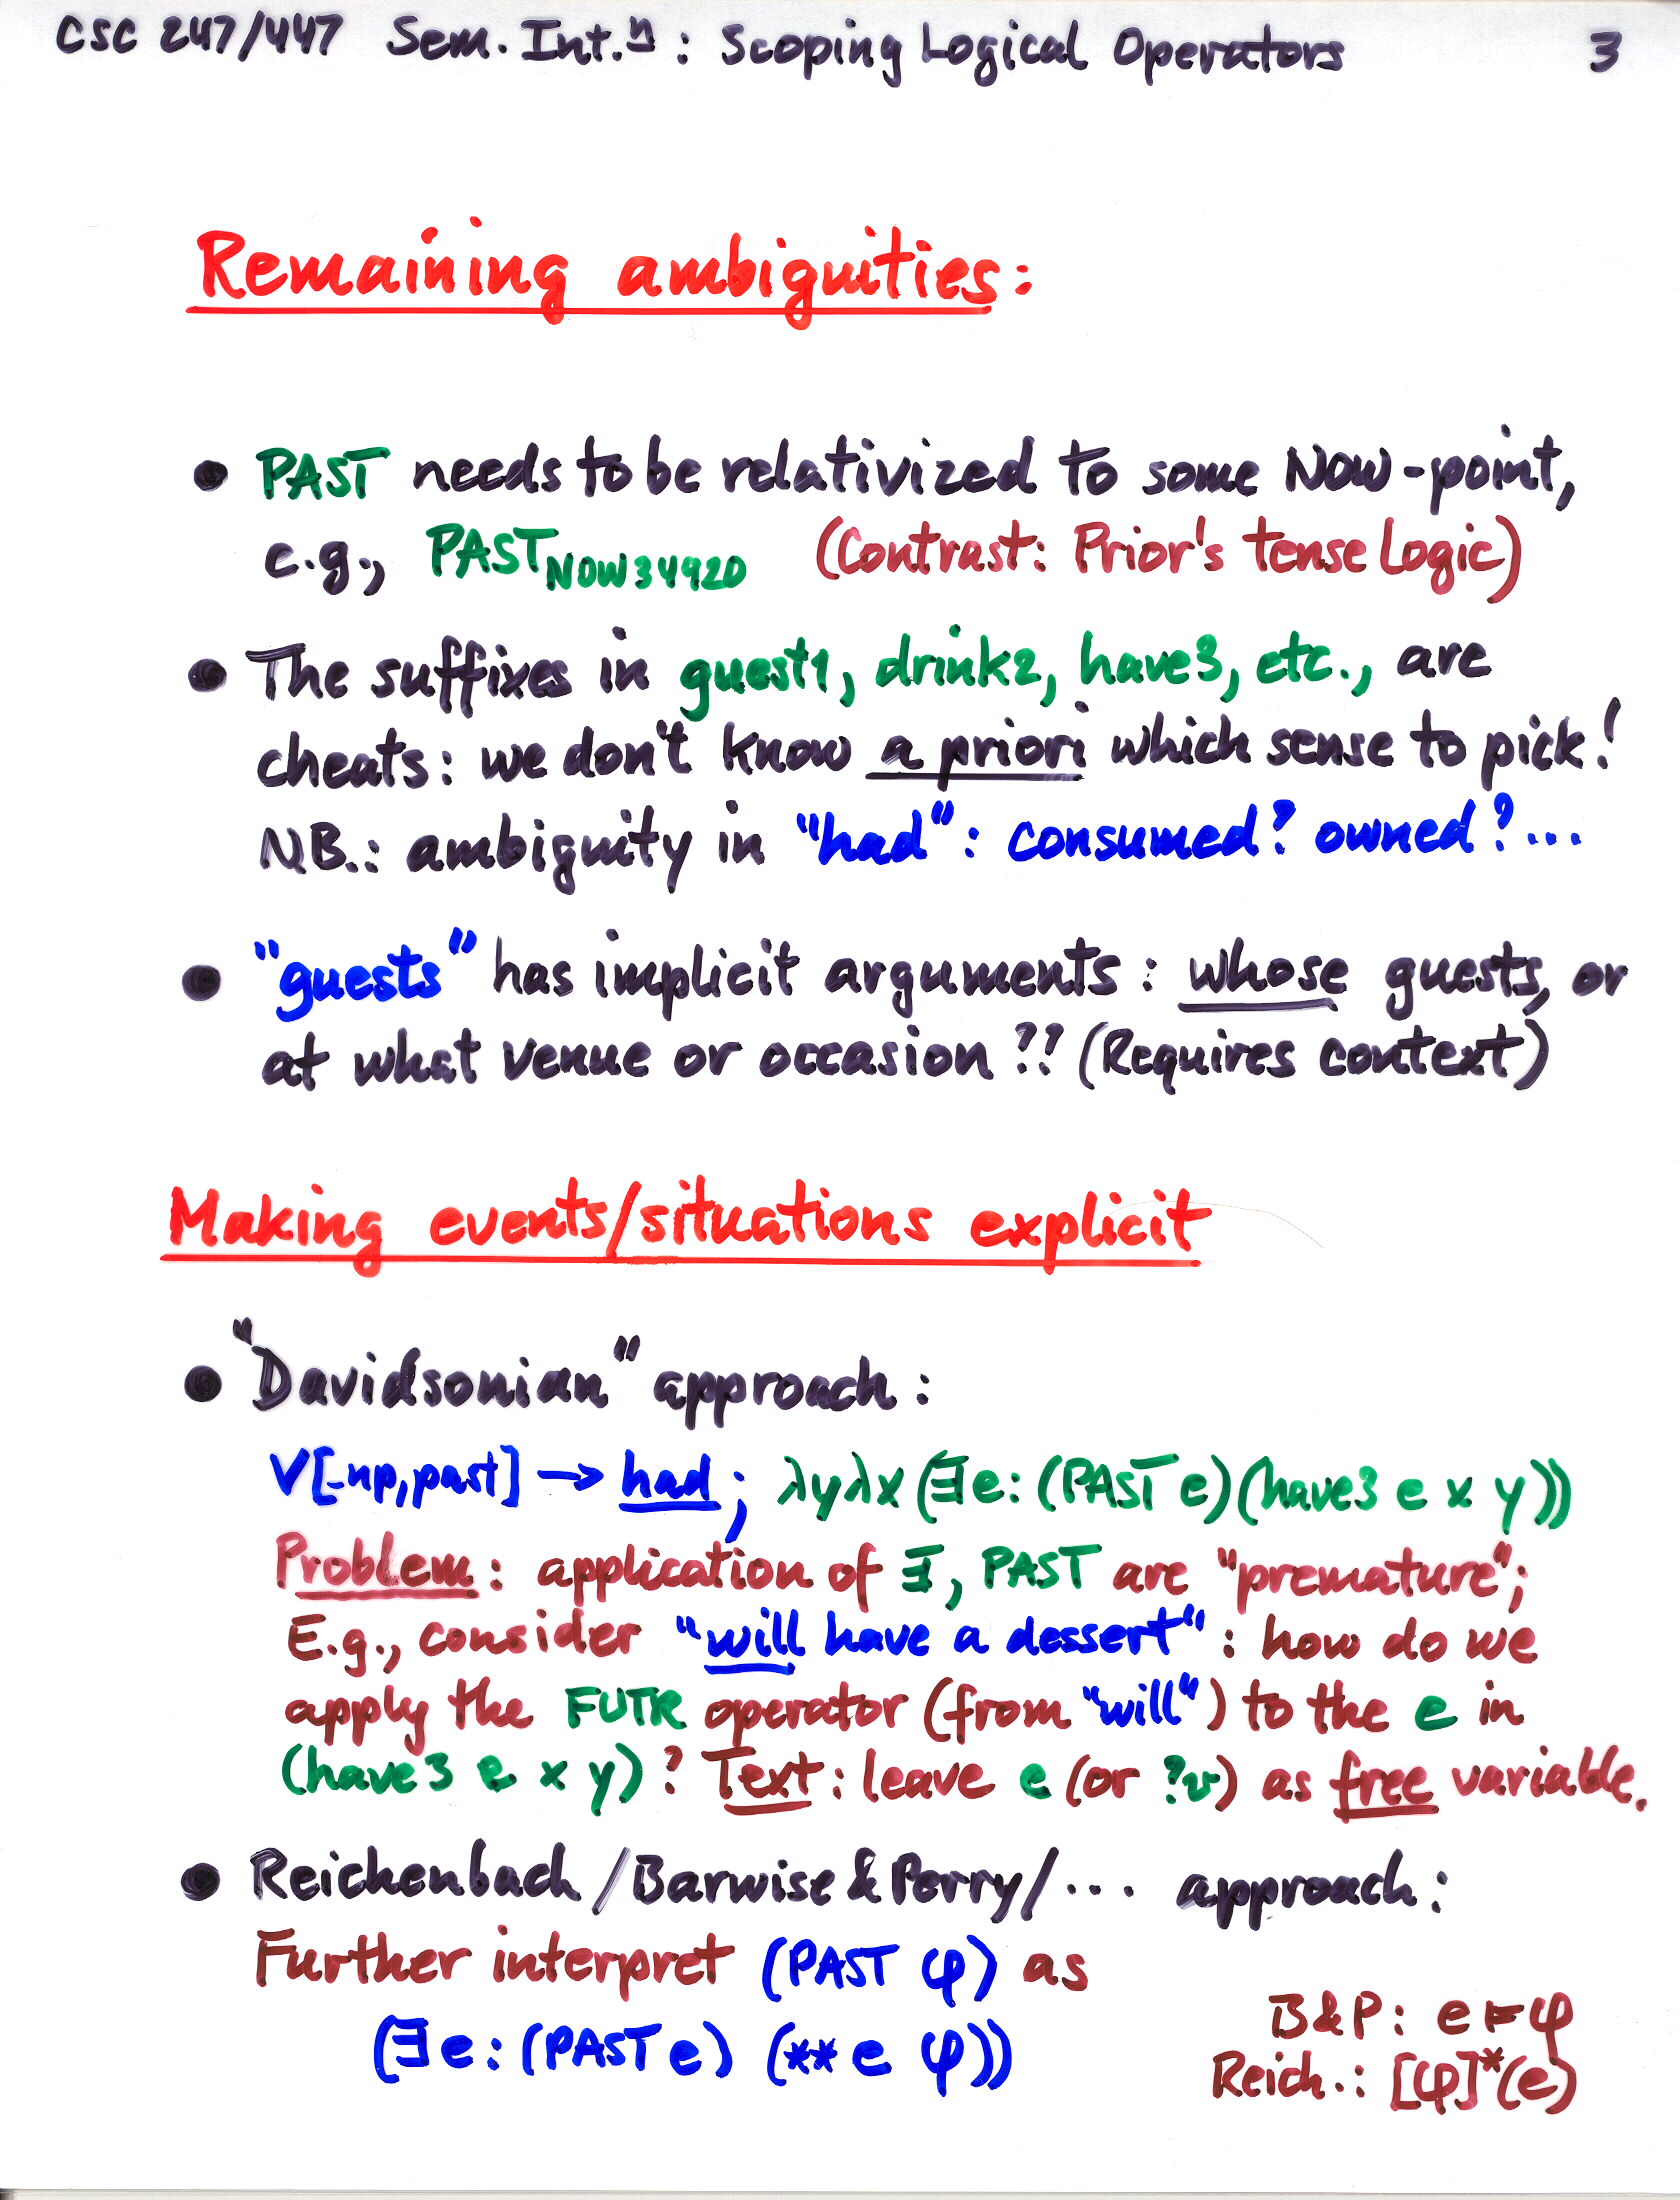 CSC 247/447 Sem. Int.ⁿ : Scoping Logical Operators 3
Remaining ambiguities:
• PAST needs to be relativized to some NOW-point,
e.g., PAST_NOW34920 (Contrast: Prior's tense logic)
• The suffixes in guest1, drink2, have3, etc., are
cheats: we don't know a priori which sense to pick!
NB.: ambiguity in "had": consumed? owned?...
• "guests" has implicit arguments: whose guests, or
at what venue or occasion?? (Requires context)
Making events/situations explicit
• "Davidsonian" approach:
V[-np,past] → had; λyλx(∃e:(PAST e)(have3 e x y))
Problem: application of ∃, PAST are "premature";
E.g., consider "will have a dessert": how do we
apply the FUTR operator (from "will") to the e in
(have3 e x y)? Text: leave e (or ?v) as free variable.
• Reichenbach/Barwise & Perry/... approach:
Further interpret (PAST φ) as
(∃e:(PAST e) (** e φ))
B&P: e ⊨ φ
Reich.: [φ]*(e)